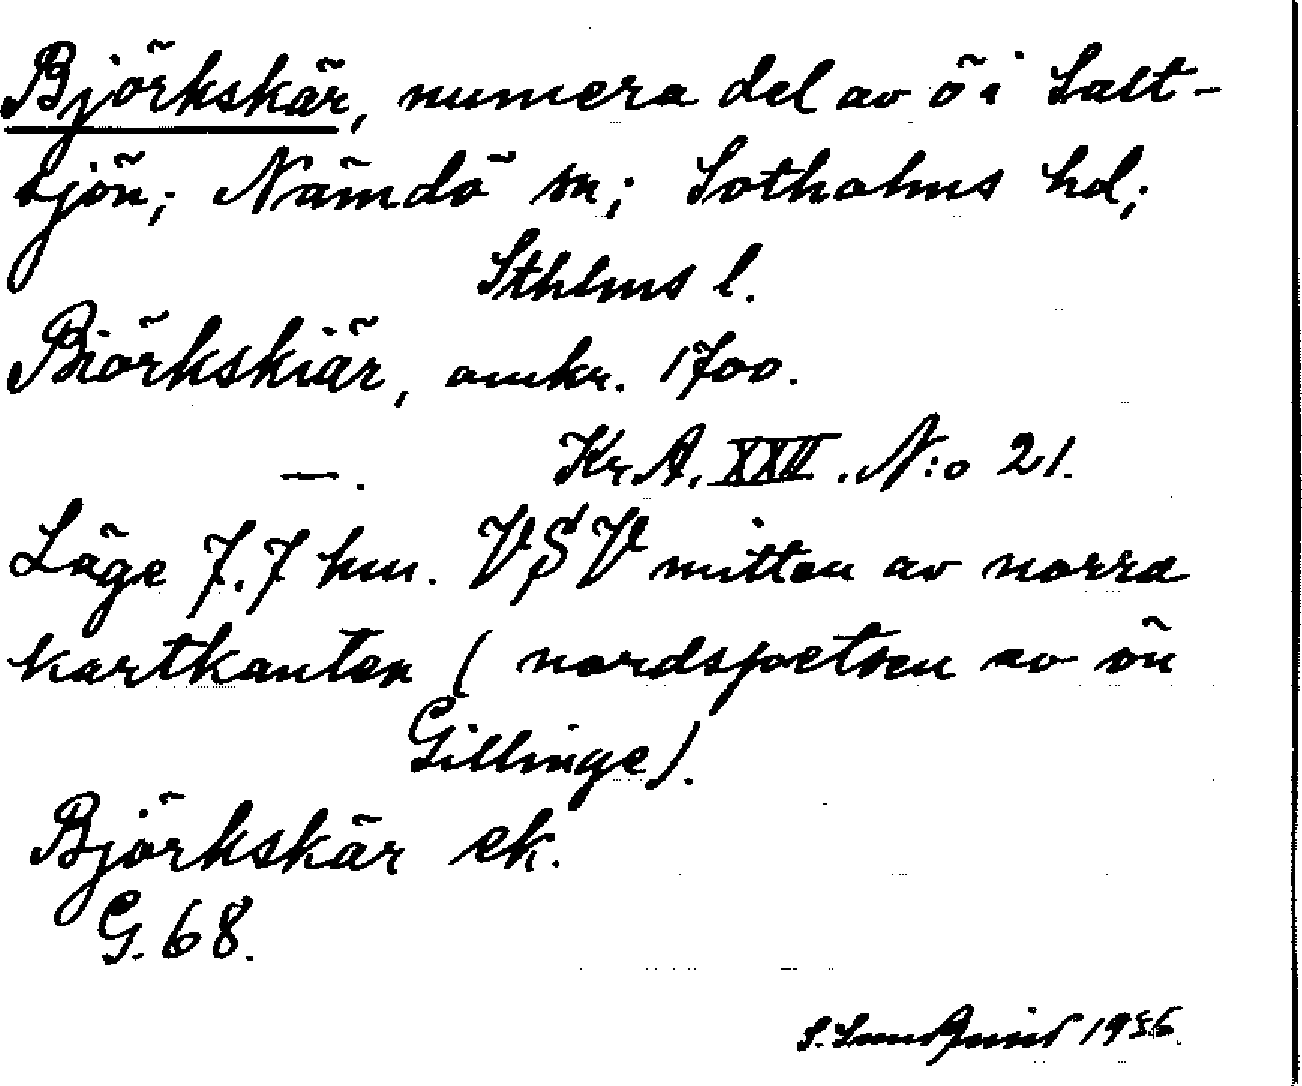 Björkskär, numera del av ö i Salt-
sjön; Nämdö sn; Sotholms hd;
Sthlms l.
Biörkskiär, omkr. 1700.
—. Kr.A. XXV. N:o 21.
Läge 7.7 hm. VSV mitten av norra
kartkanten (nordspetsen av ön
Gillinge).
Björkskär ek.
G. 68.
S. Lundquist 1936